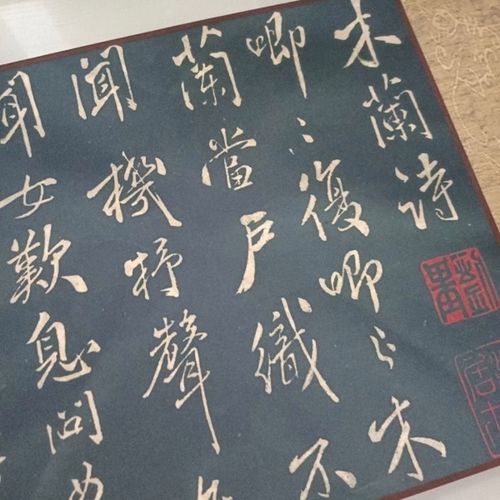 木蘭詩
唧々復唧々木
蘭當戶織不
聞機杼聲
聞女歎息問女